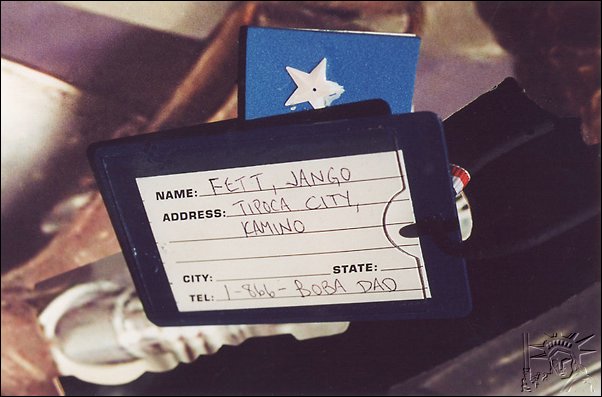 NAME: FETT, JANGO
ADDRESS: TIPOCA CITY,
KAMINO
CITY: STATE:
TEL: 1-866-BOBA DAD